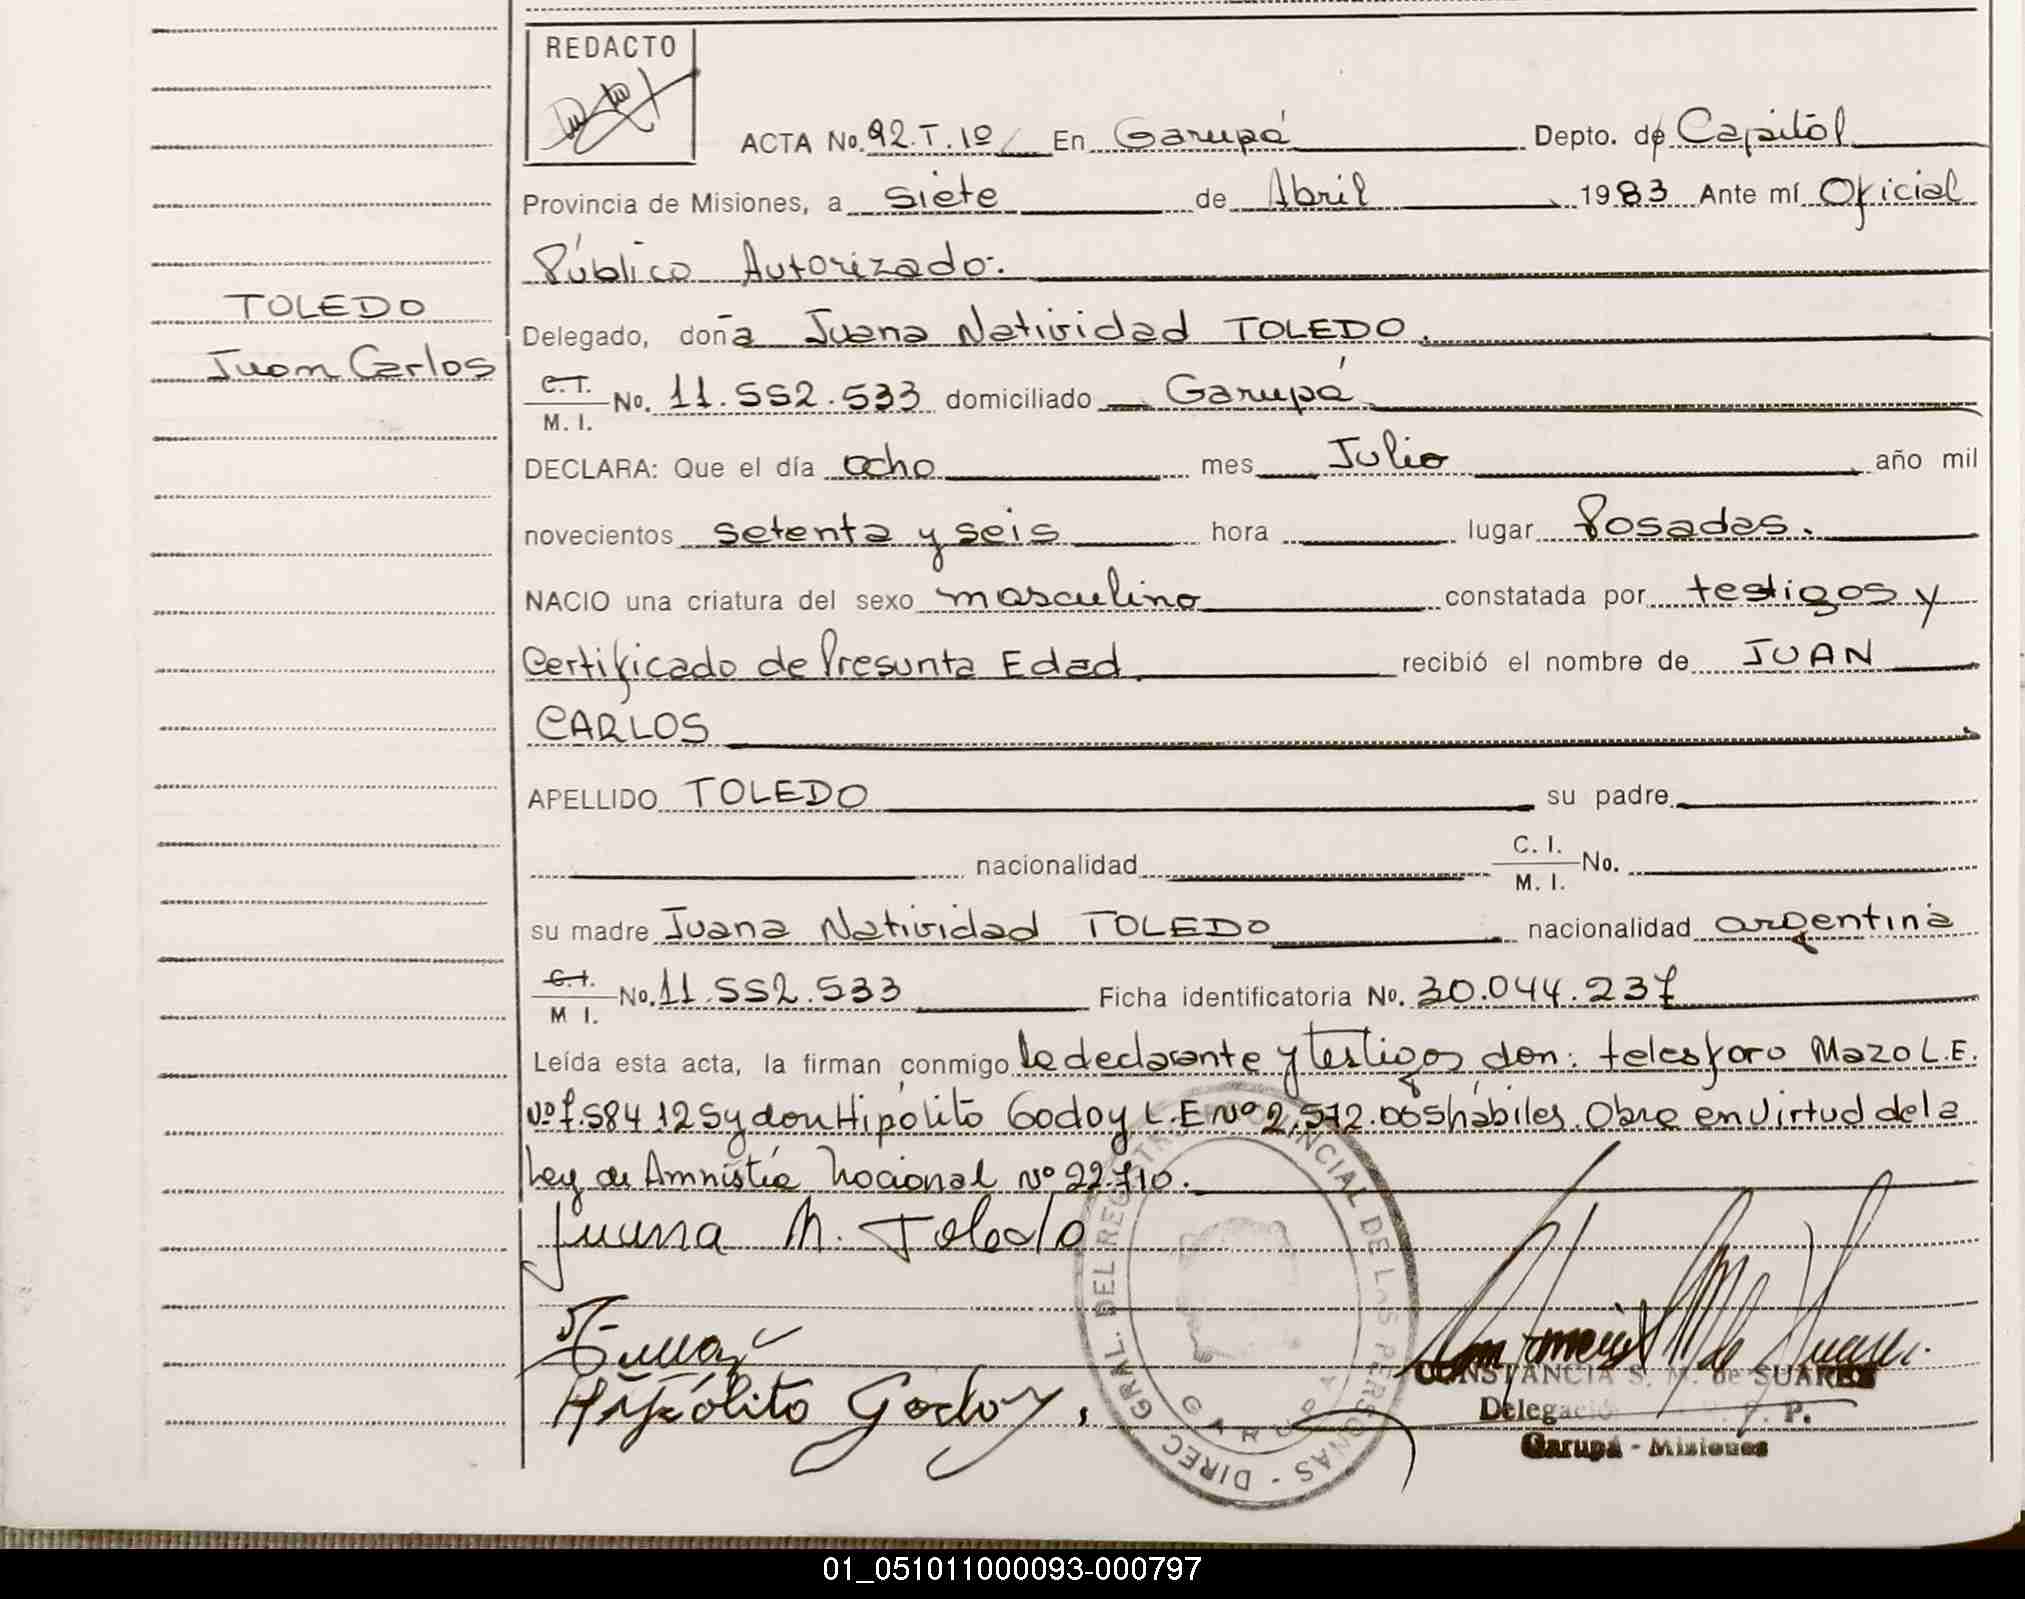 REDACTO
ACTA No. 92.T.1º En Garupá Depto. de Capital
Provincia de Misiones, a siete de Abril 1983 Ante mí Oficial
Público Autorizado.
TOLEDO
Juan Carlos
Delegado, doña Juana Natividad TOLEDO.
C.I.
M. I. No. 11.552.533 domiciliado Garupá
DECLARA: Que el día ocho mes Julio año mil
novecientos setenta y seis hora lugar Posadas.
NACIO una criatura del sexo masculino constatada por testigos y
Certificado de Presunta Edad. recibió el nombre de JUAN
CARLOS
APELLIDO TOLEDO su padre
nacionalidad C. I.
M. I. No.
su madre Juana Natividad TOLEDO nacionalidad argentina
C.I.
M I. No. 11.552.533 Ficha identificatoria No. 30.044.237
Leída esta acta, la firman conmigo la declarante y testigos don: telesforo Mazo L.E.
Nº 7.584.125 y don Hipólito Godoy L.E Nº 2.572.065 hábiles. Obre en virtud de la
Ley de Amnistía Nacional Nº 22.710.
Juana N. Toledo
Hipólito Godoy.
DIREC GRAL. DEL REGISTRO PROVINCIAL DE LAS PERSONAS - GARUPA
CONSTANCIA S. M. de SUAREZ
Delegación P.
Garupá - Misiones
01_051011000093-000797